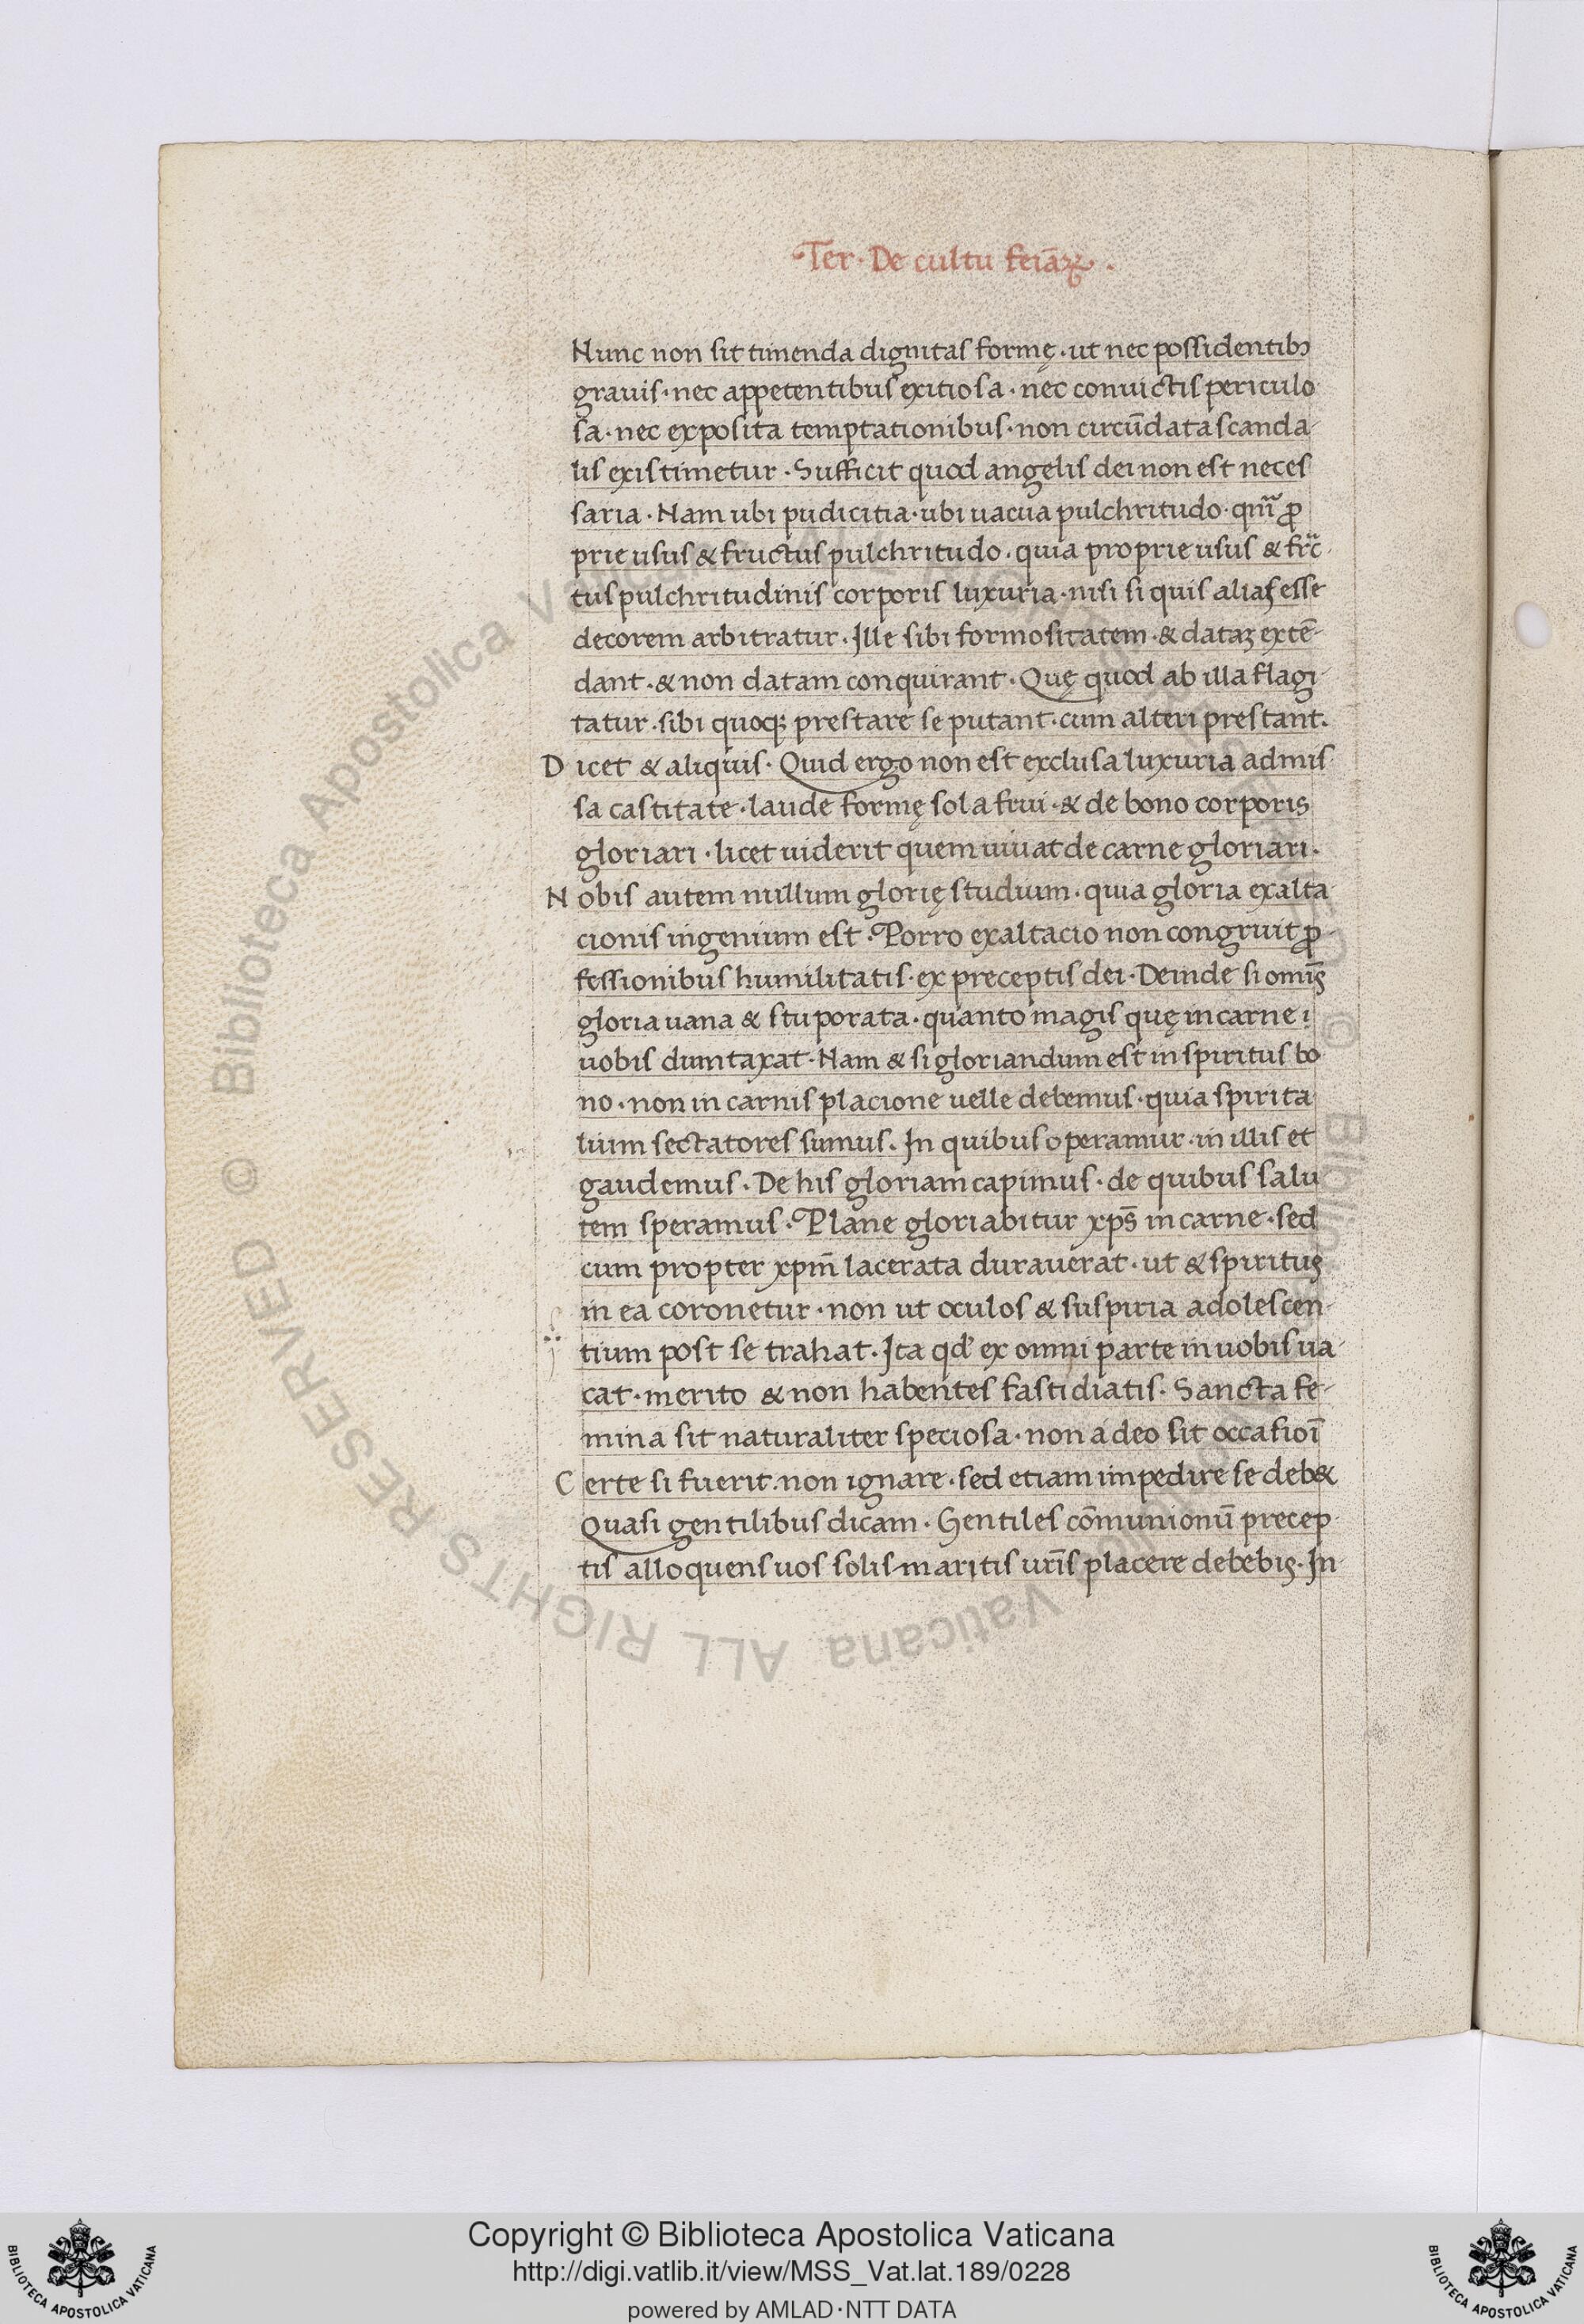 Ter · De cultu feiāꝝ ·
Nunc non sit timenda dignitas formę · ut nec possidentibꝫ
grauis · nec appetentibus exitiosa · nec conuictis periculo
sa · nec exposita temptationibus · non circūdata scanda-
lis existimetur · Sufficit quod angelis dei non est neces
saria · Nam ubi pudicitia · ubi uacua pulchritudo · qm̄ ꝓ
prie usus & fructus pulchritudo · quia proprie usus & fruc-
tus pulchritudinis corporis luxuria · nisi si quis alias esse
decorem arbitratur · Ille sibi formositatem · & dataꝫ extē-
dant · & non datam conquirant · Quę quod ab illa flagi-
tatur · sibi quoqꝫ prestare se putant · cum alteri prestant ·
Dicet & aliquis · Quid ergo non est exclusa luxuria admis
sa castitate · laude formę sola frui · & de bono corporis
gloriari · licet uiderit quem uiuat de carne gloriari ·
Nobis autem nullum glorię studium · quia gloria exalta
cionis ingenium est · Porro exaltacio non congruit ꝓ-
fessionibus humilitatis · ex preceptis dei · Deinde si omīs
gloria uana & stuporata · quanto magis quę in carne i
uobis dumtaxat · Nam & si gloriandum est in spiritus bo
no · non in carnis placione uelle debemus · quia spirita
lium sectatores sumus · In quibus operamur · in illis et
gaudemus · De his gloriam capimus · de quibus salu
tem speramus · Plane gloriabitur xp̄s in carne · sed
cum propter xpm̄ lacerata durauerat · ut & spiritus
in ea coronetur · non ut oculos & suspiria adolescen-
tium post se trahat · Ita qd' ex omni parte in uobis ua-
cat · merito & non habentes fastidiatis · Sancta fe-
mina sit naturaliter speciosa · non adeo sit occasioī
Certe si fuerit · non ignare · sed etiam impedire se deb&
Quasi gentilibus dicam · Gentiles cōmunionū precep
tis alloquens uos solis maritis ur̄is placere debebis · In
© Biblioteca Apostolica Vaticana ALL RIGHTS RESERVED
Copyright © Biblioteca Apostolica Vaticana
http://digi.vatlib.it/view/MSS_Vat.lat.189/0228
powered by AMLAD·NTT DATA
BIBLIOTECA APOSTOLICA VATICANA
BIBLIOTECA APOSTOLICA VATICANA